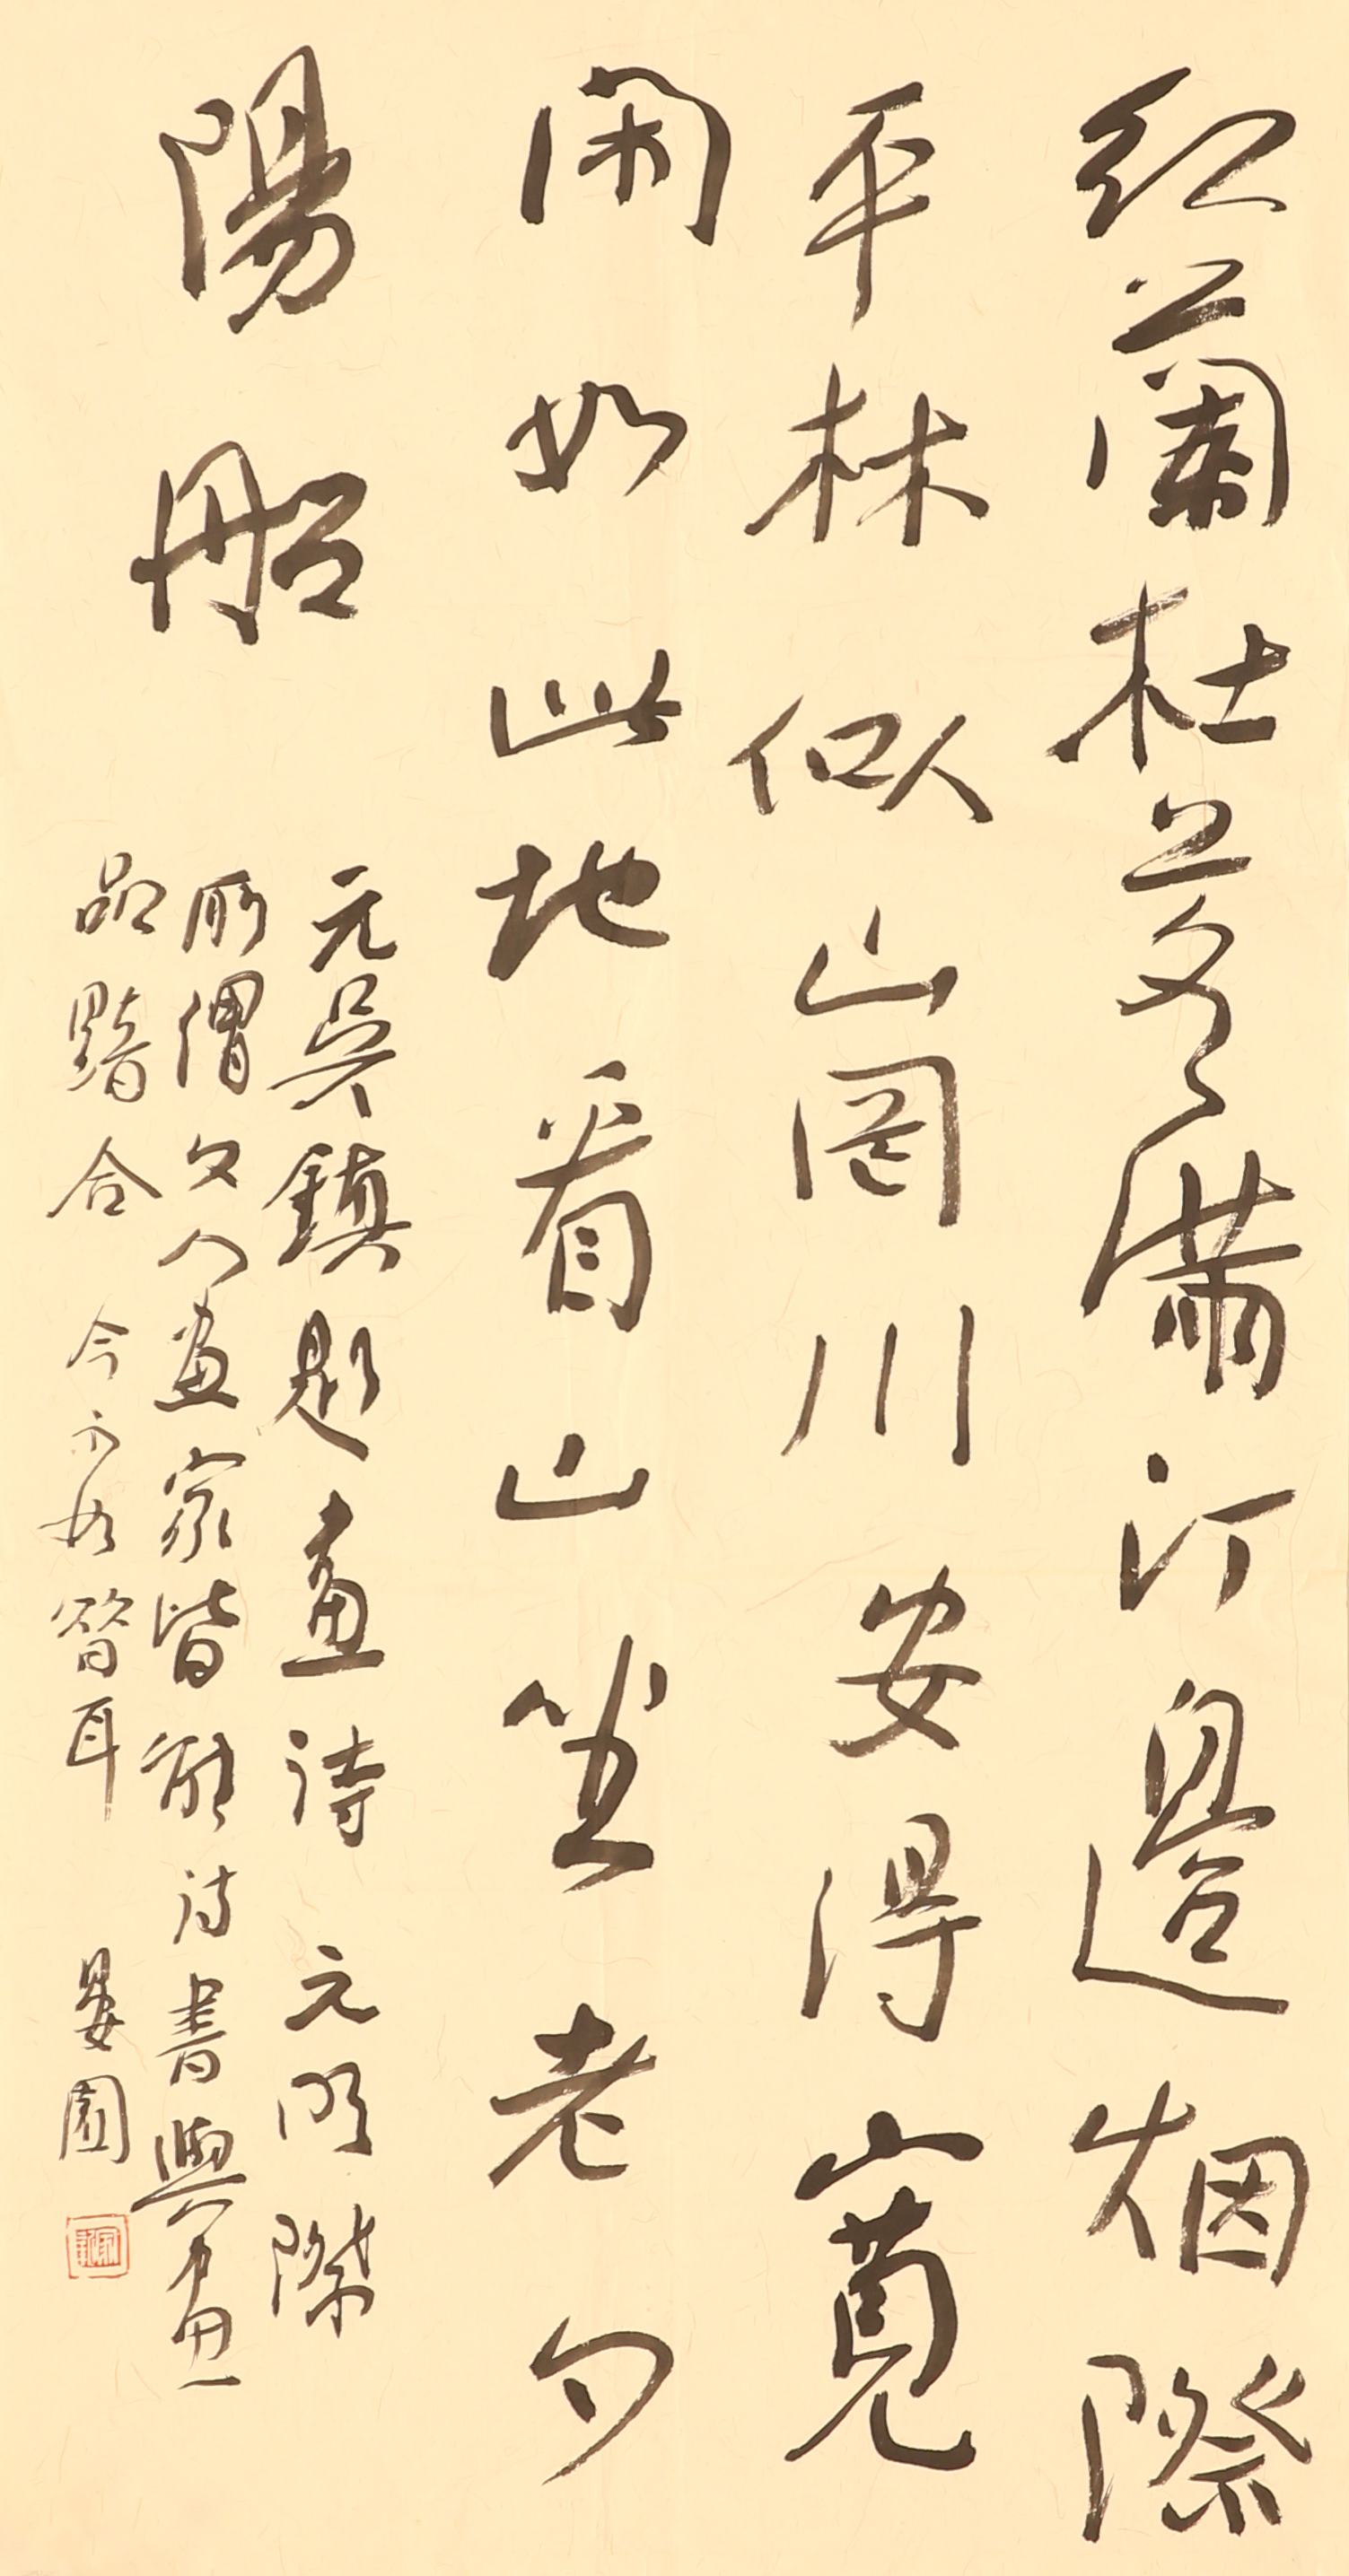 紅蘭杜若滿汀邊烟際
平林似崗川安得寬
閑如此地看山坐老夕
陽船
元吳鎮題畫詩 元明際
所謂文人畫家皆能詩書與畫
黯合 今不如昔耳 園